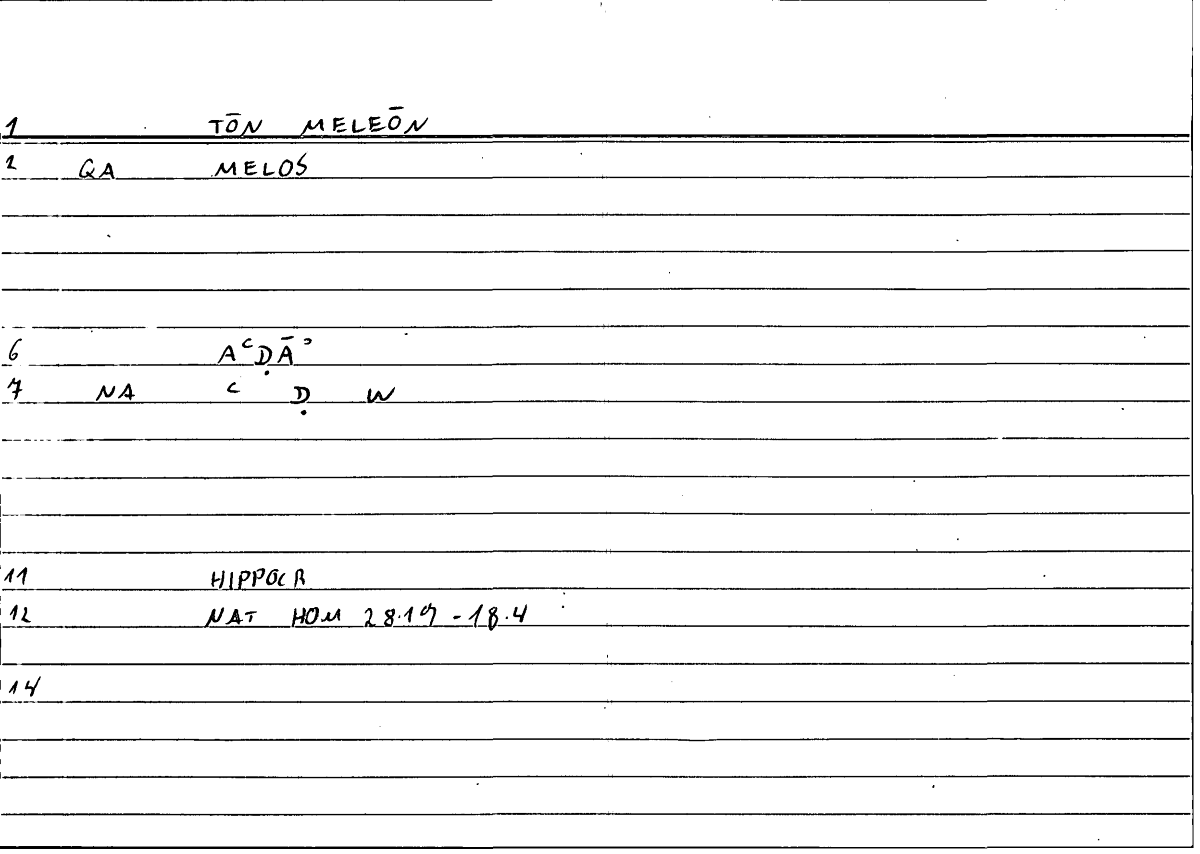 1 TŌN MELEŌN
2 QA MELOS
6 AʿḌĀʾ
7 NA ʿ Ḍ W
11 HIPPOCR
12 NAT HOM 28.19 - 18.4
14